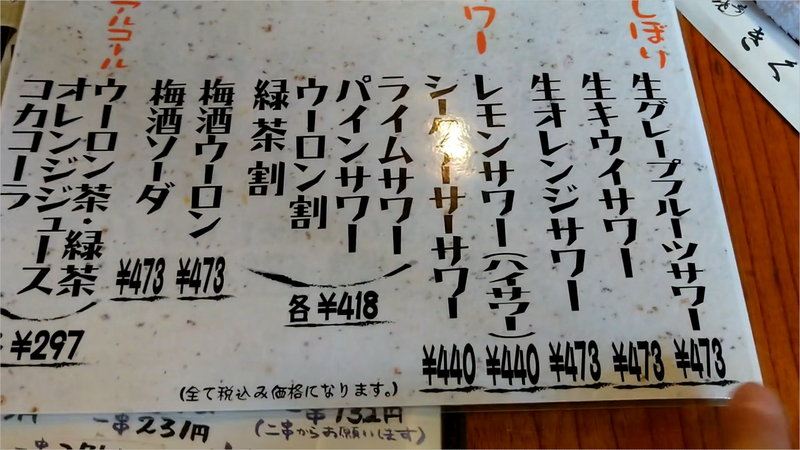 しぼり
生グレープフルーツサワー
¥473
生キウイサワー
¥473
生オレンジサワー
¥473
ワー
レモンサワー(ハイサワー)
¥440
シークヮーサーサワー
¥440
ライムサワー
パインサワー
ウーロン割
緑茶割
各¥418
梅酒ウーロン
¥473
梅酒ソーダ
¥473
アルコール
ウーロン茶・緑茶
オレンジジュース
コカコーラ
¥297
(全て税込み価格になります。)
一串231円
一串132円
(二串からお願いします)